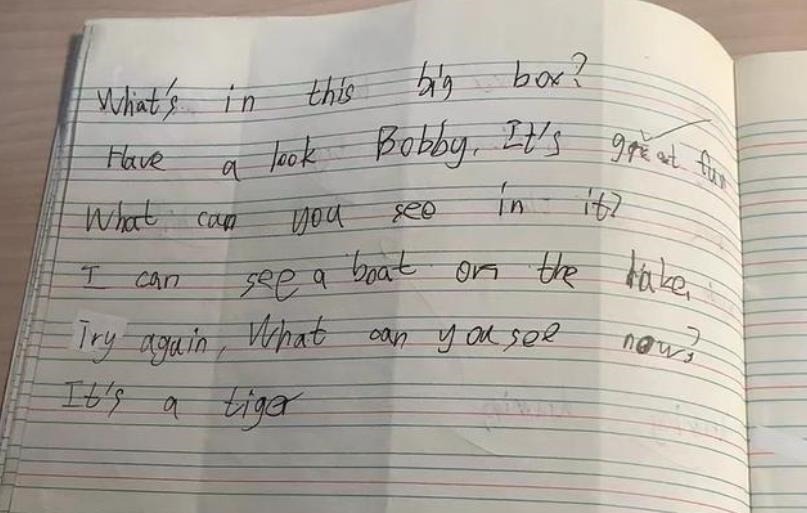 What's in this big box?
Have a look Bobby. It's great fun
What can you see in it?
I can see a boat on the lake.
Try again, What can you see now?
It's a tiger